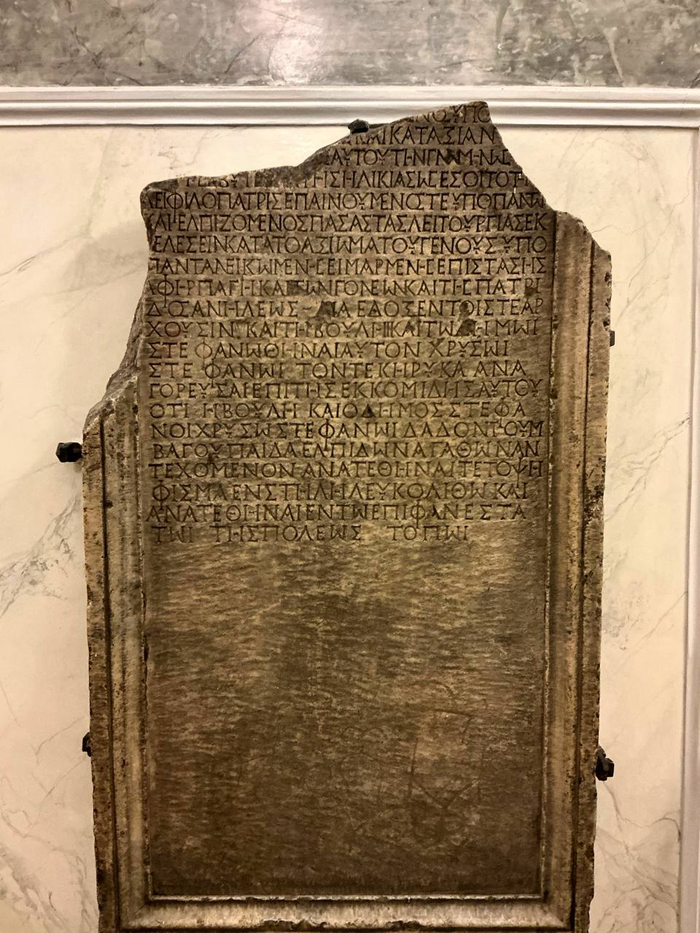 ΝΟΥΠΟ
ΚΑΙΚΑΤΑΞΙΑΝ
ΑΥΤΟΥΤΗΝΓΝΩΜΗΝΩΣ
ΤΗΣΗΛΙΚΙΑΣΩΣΕΣΟΙΤΟΤ
ΛΕΙΦΙΛΟΠΑΤΡΙΣΕΠΑΙΝΟΥΜΕΝΟΣΤΕΥΠΟΠΑΝΤΩ
ΚΑΙΕΛΠΙΖΟΜΕΝΟΣΠΑΣΑΣΤΑΣΛΕΙΤΟΥΡΓΙΑΣΕΚ
ΤΕΛΕΣΕΙΝΚΑΤΑΤΟΑΞΙΩΜΑΤΟΥΓΕΝΟΥΣΥΠΟ
ΠΑΝΤΑΝΕΙΚΩΜΕΝΗΣΕΙΜΑΡΜΕΝΗΣΕΠΙΣΤΑΣΗΣ
ΑΦΗΡΠΑΓΗΚΑΙΤΩΝΓΟΝΕΩΝΚΑΙΤΗΣΠΑΤΡΙ
ΔΟΣΑΝΗΛΕΩΣ ΔΙΑΕΔΟΞΕΝΤΟΙΣΤΕΑΡ
ΧΟΥΣΙΝΚΑΙΤΗΒΟΥΛΗΚΑΙΤΩΔΗΜΩΙ
ΣΤΕΦΑΝΩΘΗΝΑΙΑΥΤΟΝ ΧΡΥΣΩΙ
ΣΤΕΦΑΝΩΙ ΤΟΝΤΕΚΗΡΥΚΑΑΝΑ
ΓΟΡΕΥΣΑΙΕΠΙΤΗΣΕΚΚΟΜΙΔΗΣΑΥΤΟΥ
ΟΤΙ ΗΒΟΥΛΗ ΚΑΙΟΔΗΜΟΣΣΤΕΦΑ
ΝΟΙΧΡΥΣΩΣΤΕΦΑΝΩΙΔΑΔΟΝΤΟΥΜ
ΒΑΓΟΥΠΑΙΔΑΕΛΠΙΔΩΝΑΓΑΘΩΝΑΝ
ΤΕΧΟΜΕΝΟΝΑΝΑΤΕΘΗΝΑΙΤΕΤΟΨΗ
ΦΙΣΜΑΕΝΣΤΗΛΗΛΕΥΚΟΛΙΘΩΚΑΙ
ΑΝΑΤΕΘΗΝΑΙΕΝΤΩΕΠΙΦΑΝΕΣΤΑ
ΤΩΙ ΤΗΣΠΟΛΕΩΣ ΤΟΠΩΙ